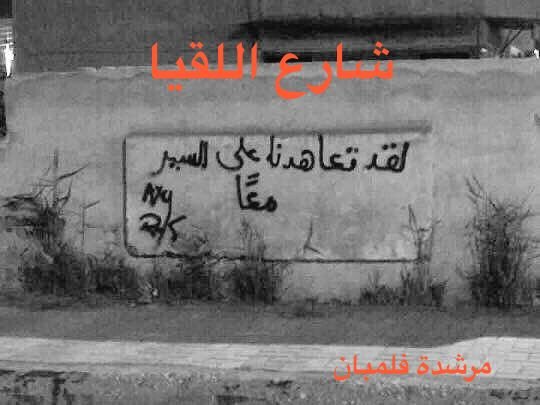 شارع اللقيا
لقد تعاهدنا على السير
معًا
مرشدة فلمبان